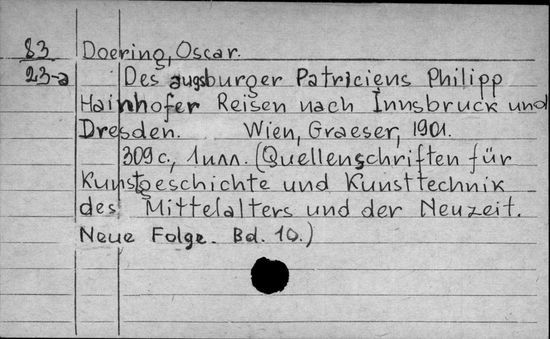 83 Doering, Oscar.
23-a Des augsburger Patriciens Philipp
Hainhofer Reisen nach Innsbruck und
Dresden. Wien, Graeser, 1901.
309 с., 1 илл. (Quellenschriften für
Kunstgeschichte und Kunsttechnik
des Mittelalters und der Neuzeit.
Neue Folge. Bd. 10.)